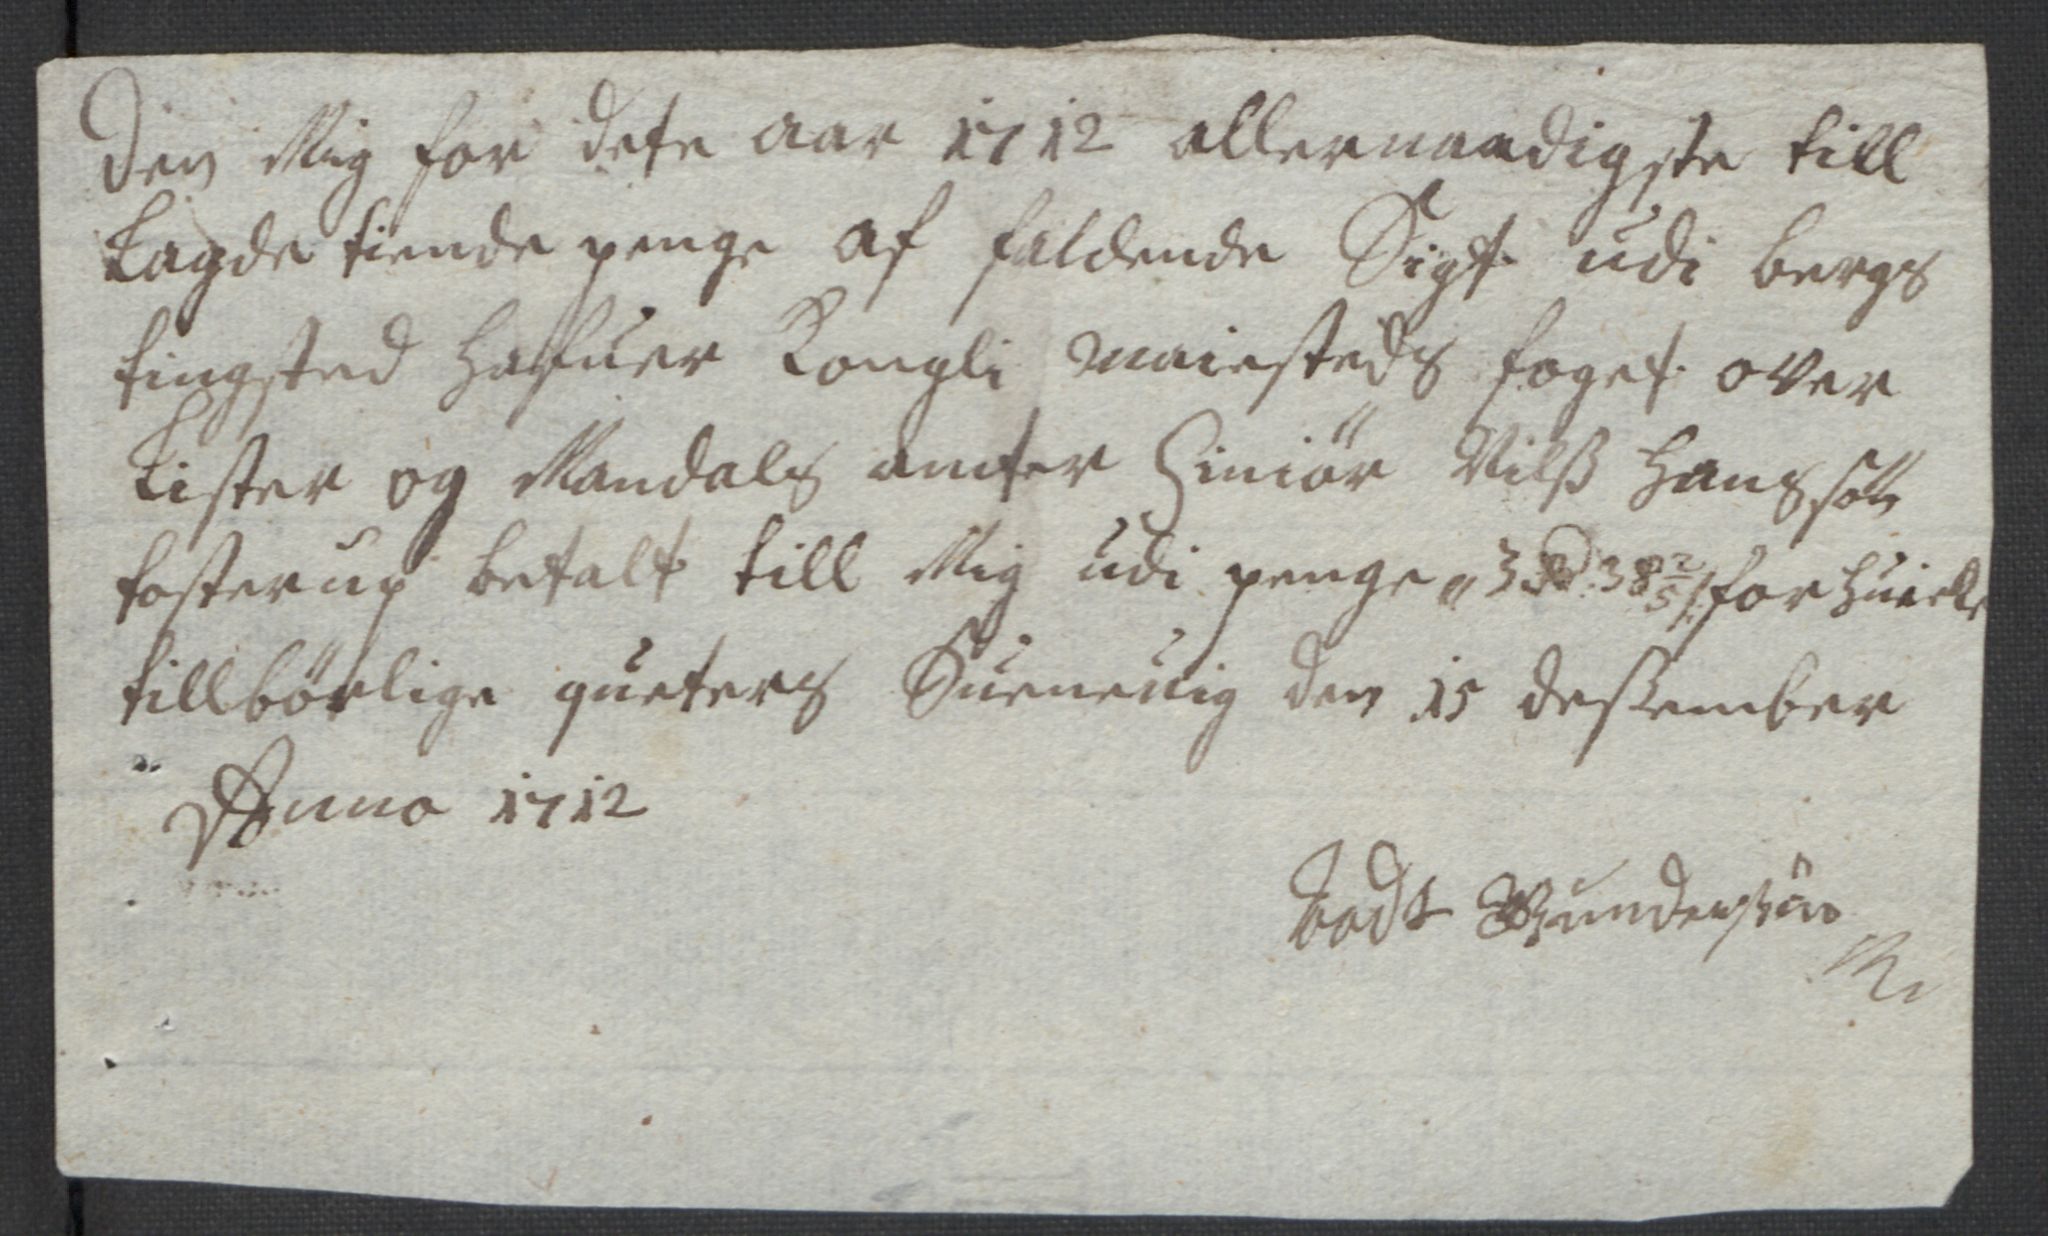 Den Mig for dete aar 1712 allernaadigste till
Lagde tiende penge af faldende Sigt udi bergs
tingsted hafuer Kongli maiesteds foget over
Lister og Mandals amter Siniör Nilß Hansson
tosterup betalt till Mig udi penge 3 Rd 38 2/5 ß for huicke
tillbörlige queters Sueneuig den 15 deßember
Anno 1712
Todt Gundersön